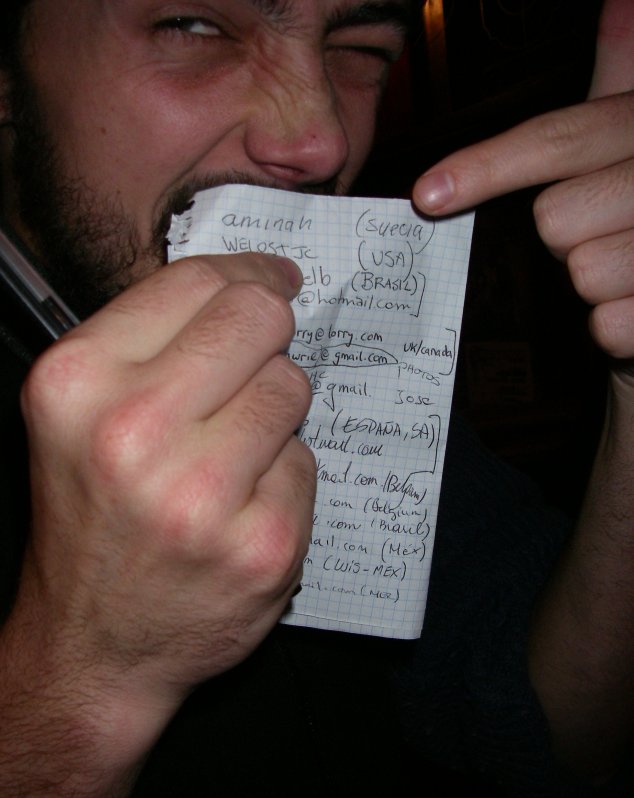 aminah (suecia)
WELOSTJC (USA)
elb (BRASIL)
@hotmail.com]
rry@lorry.com UK/canada
wrie@gmail.com PHOTOS
@gmail. Jose
(ESPAÑA, SA)
hotmail.com
mail.com (Belgium)
.com (Belgium)
.com (Brasil)
ail.com (Méx)
m (LUIS-MEX)
.com (MEX)